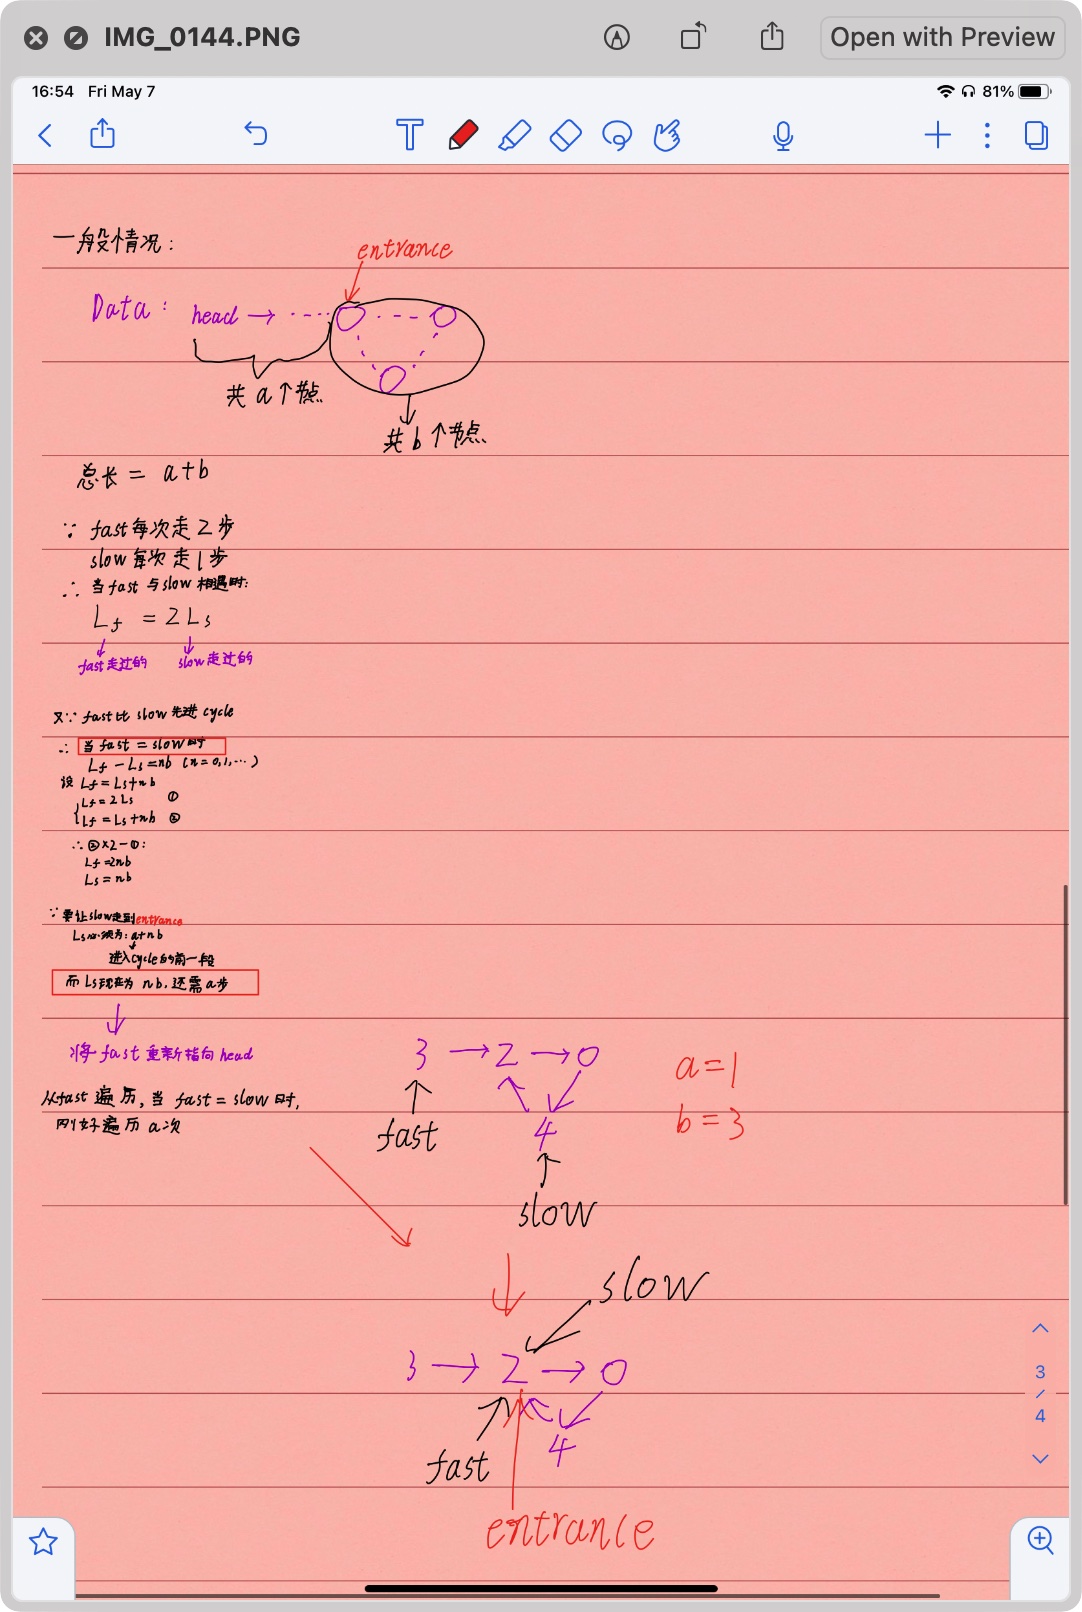 IMG_0144.PNG
Open with Preview
16:54 Fri May 7
81%
一般情况：
entrance
Data： head →
共 a 个节点
共 b 个节点
总长 = a+b
∵ fast 每次走 2 步
slow 每次走 1 步
∴ 当 fast 与 slow 相遇时：
Lf = 2Ls
fast走过的 slow走过的
又∵ fast比 slow 先进 cycle
∴ 当 fast = slow 时
Lf - Ls = nb (n=0,1,…)
设 Lf = Ls+nb
Lf = 2Ls ①
Lf = Ls+nb ②
∴ ②×2-①：
Lf =2nb
Ls = nb
∵ 要让slow走到entrance
Ls必须为：a+nb
进入cycle的前一段
而 Ls现在为 nb，还需 a步
将 fast 重新指向 head
从fast 遍历，当 fast = slow 时，
刚好遍历 a次
3 → 2 → 0
a=1
b=3
fast
4
slow
slow
3 → 2 → 0
4
fast
entrance
3
/
4